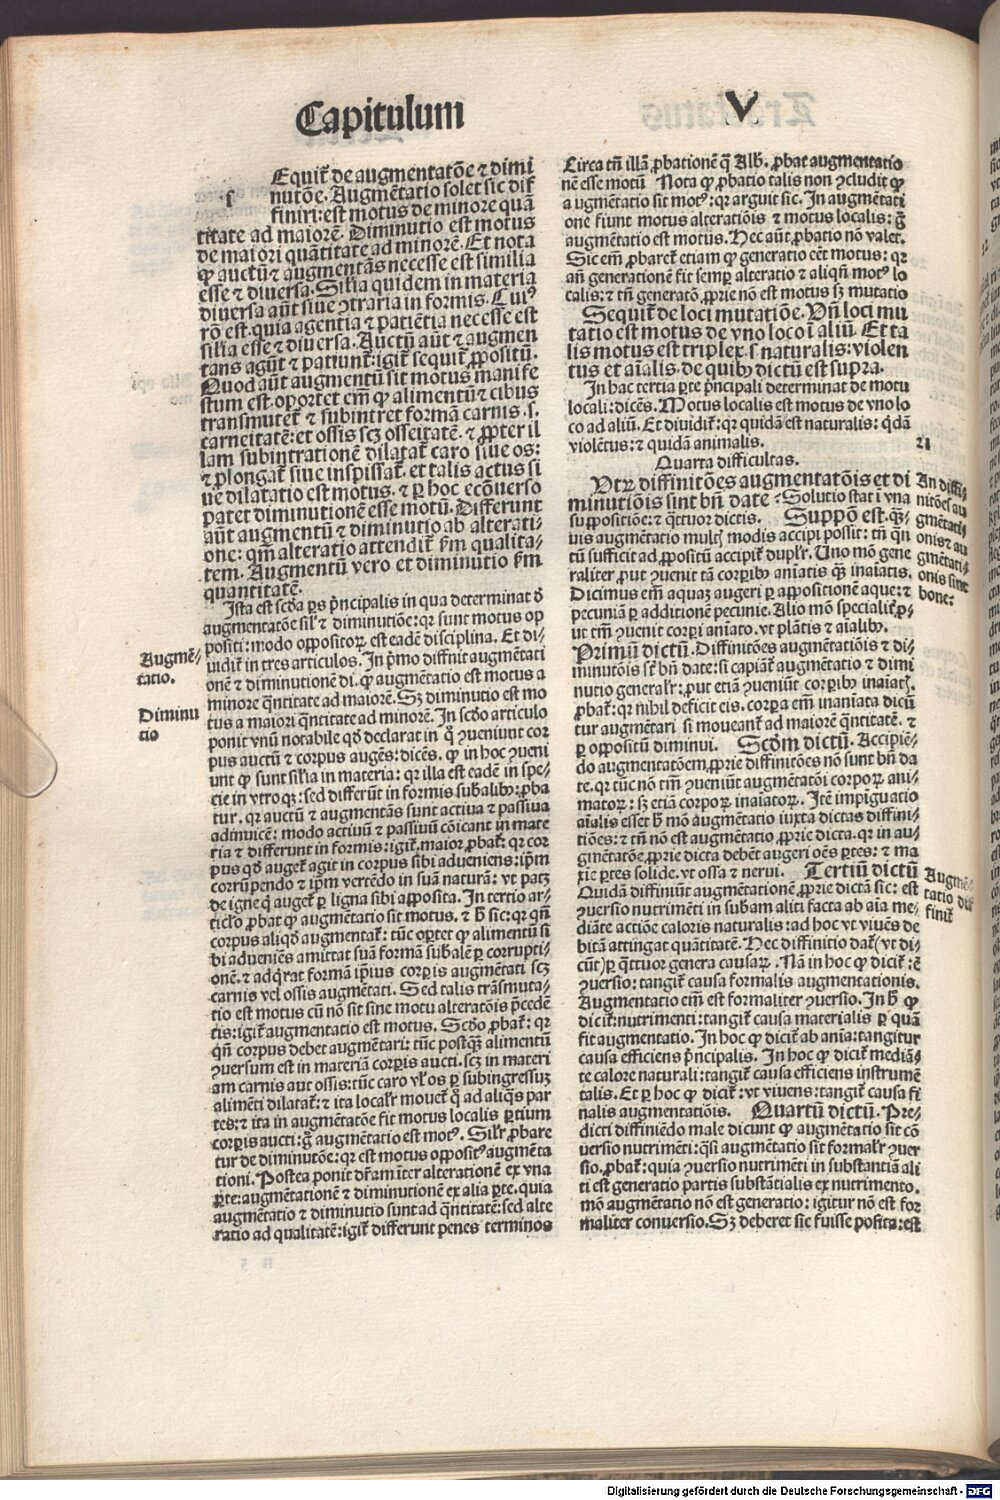 Capitulum
V
f
Equit̄ de augmentatōe ⁊ dimi
nutōe. Augmētatio solet sic dif
finiri: est motus de minore quā
titate ad maiorē. Diminutio est motus
de maiori quātitate ad minorē. Et nota
ꝙ auctū ⁊ augmentās necesse est similia
esse ⁊ diuersa. Silia quidem in materia
diuersa aūt siue ꝯtraria in formis. Cuiꝰ
rō est. quia agentia ⁊ patiētia necesse est
silia esse ⁊ diuersa. Auctū aūt ⁊ augmen
tans agūt ⁊ patiunt̄: igit̄ sequit̄ ꝓpositū.
Quod aūt augmentū sit motus manife
stum est. oportet em̄ ꝙ alimentū ⁊ cibus
transmutet̄ ⁊ subintret formā carnis .s.
carneitatē: et ossis scꝫ osseitatē. ⁊ ꝓpter il
lam subintrationē dilatat̄ caro siue os:
⁊ ꝓlongat̄ siue inspissat̄. et talis actus si
ue dilatatio est motus. ⁊ ꝑ hoc ecōuerso
patet diminutionē esse motū. Differunt
aūt augmentū ⁊ diminutio ab alterati-
one: qm̄ alteratio attendit̄ ẜm qualita-
tem. Augmentū vero et diminutio ẜm
quantitatē.
Ista est scd̄a ꝑs p̄ncipalis in qua determinat ð
augmentatōe sil'r ⁊ diminutiōe: qr sunt motus op
positi: modo oppositoꝝ est eadē disciplina. Et di-
uidit̄ in tres articulos. In p̄mo diffinit augmētati
onē ⁊ diminutionē di. ꝙ augmētatio est motus a
minore q̄ntitate ad maiorē. Sꝫ diminutio est mo
tus a maiori q̄ntitate ad minorē. In scd̄o articulo
ponit vnū notabile qð declarat in q̊ ꝯueniunt cor
pus auctū ⁊ corpus augēs: dicēs. ꝙ in hoc ꝯueni
unt ꝙ sunt silia in materia: qr illa est eadē in spe-
cie in vtroqꝫ: sed differūt in formis sub̄alibꝰ: ꝓba
tur. qr auctū ⁊ augmentās sunt actiua ⁊ passiua
adinuicē: modo actiuū ⁊ passiuū cōicant in mate
ria ⁊ differunt in formis: igit̄. maior ꝓbat̄: qr cor
pus qð auget̄ agit in corpus sibi adueniens: ip̄m
corrūpendo ⁊ ip̄m vertēdo in suā naturā: vt patꝫ
de igne q̄ auget̄ ꝑ ligna sibi apposita. In tertio ar-
ticl'o ꝓbat ꝙ augmētatio sit motus. ⁊ ħ sic: qr qn̄
corpus aliqð augmentat̄: tūc oꝑtet ꝙ alimentū si
bi adueniēs amittat suā formā sub̄alē ꝑ corrupti-
onē. ⁊ adq̄rat formā ip̄ius corꝑis augmētati scꝫ
carnis vel ossis augmētati. Sed talis trāsmuta-
tio est motus cū nō sit sine motu alteratōis p̄cedē
tis: igit̄ augmentatio est motus. Scd̄o ꝓbat̄: qr
qn̄ corpus debet augmētari: tūc postq̄ꝫ alimentū
ꝯuersum est in materiā corꝑis aucti. scꝫ in materi
am carnis aut ossis: tūc caro vl' os ꝑ subingressuꝫ
alimēti dilatat̄: ⁊ ita local'r mouet̄ q̊ ad aliq̄s par
tes: ⁊ ita in augmētatōe fit motus localis ꝑtium
corꝑis aucti: g̊ augmētatio est motꝰ. Sil'r ꝓbare
tur de diminutōe: qr est motus oppositꝰ augmēta
tioni. Postea ponit dr̄am īter alterationē ex vna
ꝑte: augmētationē ⁊ diminutionē ex alia ꝑte. quia
augmētatio ⁊ diminutio sunt ad q̄ntitatē: sed alte
ratio ad qualitatē: igit̄ differunt penes terminos
Augmē-
tatio.
Diminu
tio
Circa tn̄ illā ꝓbationē q̄ Alb. ꝓbat augmentatio
nē esse motū Nota ꝙ ꝓbatio talis non ꝯcludit ꝙ
augmentatio sit motꝰ: qr arguit sic. In augmētati
one fiunt motus alteratiōis ⁊ motus localis: g̊
augmētatio est motus. Hec aūt ꝓbatio nō valet.
Sic em̄ ꝓbaret̄ etiam ꝙ generatio eēt motus: qr
añ generationē fit semꝑ alteratio ⁊ aliqn̄ motꝰ lo
calis: ⁊ tn̄ generatō ꝓprie nō est motus sꝫ mutatio
Sequit̄ de loci mutatiōe. Vn̄ loci mu
tatio est motus de vno loco ī aliū. Et ta
lis motus est triplex .s. naturalis: violen
tus et aīalis. de quibꝰ dictū est supra.
In hac tertia ꝑte p̄ncipali determinat de motu
locali: dicēs. Motus localis est motus de vno lo
co ad aliū. Et diuidit̄: qr quidā est naturalis: q̄dā
violētus: ⁊ quidā animalis.
Quarta difficultas.
Vtꝝ diffinitōes augmentatōis et di
minutiōis sint bn̄ date? Solutio stat ī vna
suppositiōe: ⁊ q̄ttuor dictis. Suppō est. q̄ꝫ-
uis augmētatio multꝭ modis accipi possit: tn̄ q̄n
tū sufficit ad ꝓpositū accipit̄ dupl'r. Uno mō gene
raliter ꝓut ꝯuenit tā corꝑibꝰ aīatis q̄ꝫ inaīatis.
Dicimus em̄ aquaꝫ augeri ꝑ appositionē aque: ⁊
pecuniā ꝑ additionē pecunie. Alio mō specialit̄ ꝓ-
ut tm̄ ꝯuenit corꝑi aīato. vt plātis ⁊ aīalibꝰ.
Primū dictū. Diffinitōes augmētatiōis ⁊ di-
minutōis sc̄t bn̄ date: si capiat̄ augmētatio ⁊ dimi
nutio general'r: ꝓut etiā ꝯueniūt corꝑibꝰ inaīatꝭ.
ꝓbat̄: qr nihil deficit eis. corꝑa em̄ inaniata dicū
tur augmētari si moueant̄ ad maiorē q̄ntitatē. ⁊
ꝑ oppositū diminui. Scd̄m dictū. Accipiē-
do augmentatōem ꝓprie diffinitōes nō sunt bn̄ da
te. qr tūc nō tm̄ ꝯueniūt augmētatōi corpoꝝ ani-
matoꝝ: sꝫ etiā corpoꝝ inaīatoꝝ. Itē impīguatio
aīalis esset ħ mō augmētatio iuxta dictas diffini-
tiōes: ⁊ tn̄ nō est augmētatio ꝓprie dicta. qr in au-
gmētatōe ꝓprie dicta debēt augeri oēs ꝑtes: ⁊ ma
xīe ꝑtes solide. vt ossa ⁊ nerui. Tertiū dictū
Quidā diffiniūt augmētationē ꝓprie dictā sic: est
ꝯuersio nutrimēti in sub̄am aliti facta ab aīa me-
diāte actiōe caloris naturalis: ad hoc vt viuēs de
bitā attingat quātitatē. Hec diffinitio dat̄ (vt di-
cūt) ꝑ q̄ttuor genera causaꝝ. Nā in hoc ꝙ dicit̄: ē
ꝯuersio: tangit̄ causa formalis augmentationis.
Augmentatio em̄ est formaliter ꝯuersio. In ħ ꝙ
dicit̄: nutrimenti: tangit̄ causa materialis ꝑ quā
fit augmentatio. In hoc ꝙ dicit̄ ab anīa: tangitur
causa efficiens p̄ncipalis. In hoc ꝙ dicit̄ mediā-
te calore naturali: tangit̄ causa efficiens instrumē
talis. Et ꝑ hoc ꝙ dicit̄: vt viuens: tangit̄ causa fi
nalis augmentatiōis. Quartū dictū. Pre-
dicti diffiniēdo male dicunt ꝙ augmētatio sit cō
uersio nutrimēti: q̄si augmētatio sit formal'r ꝯuer
sio. ꝓbat̄: quia ꝯuersio nutrimēti in substantiā ali
ti est generatio partis substātialis ex nutrimento.
mō augmētatio nō est generatio: igitur nō est for
maliter conuersio. Sꝫ deberet sic fuisse posita: est
21
An diffi-
nitōes au
gmētati-
onis ⁊ au
gmētati-
onis sint
bone:
Augmē-
tatio dif
finit̄
Digitalisierung gefördert durch die Deutsche Forschungsgemeinschaft - DFG